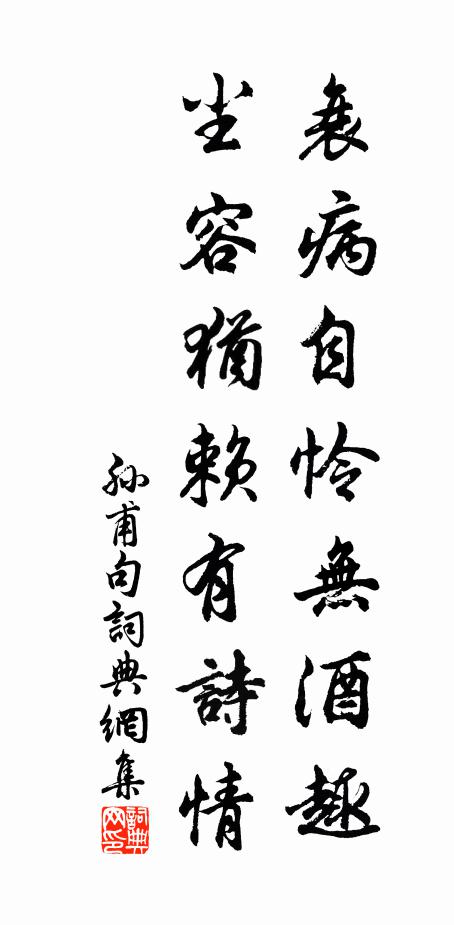 衰病自怜無酒趣
尘容猶赖有詩情
孙甫句詞典網集
詞典网印